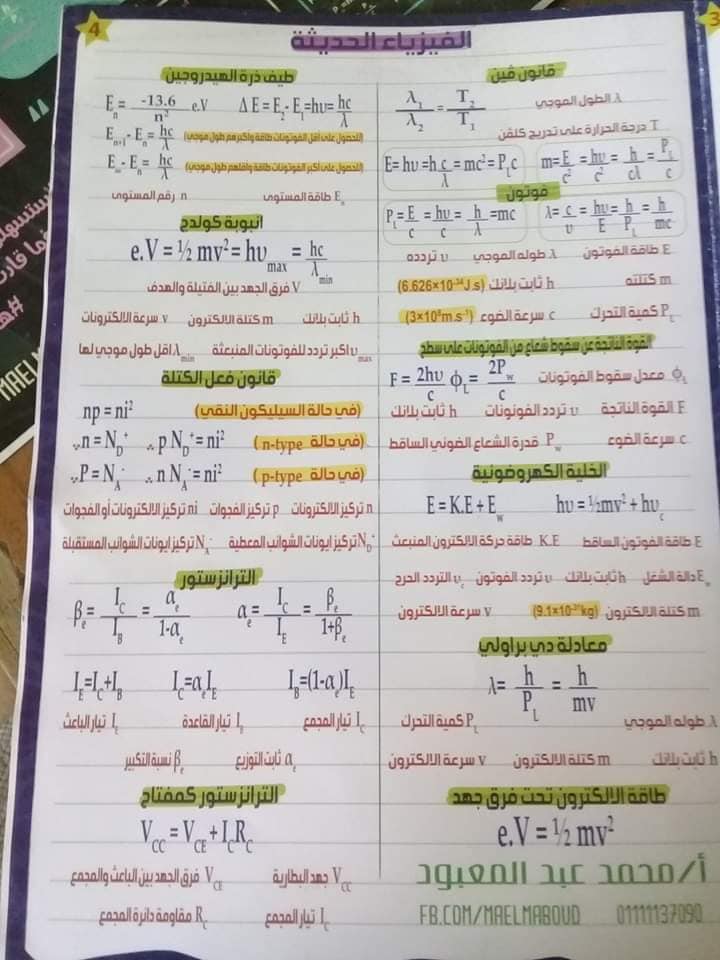 4
3
الفيزياء الحديثة
قانون فين
λ₁/λ₂ = T₂/T₁
λ الطول الموجي
T درجة الحرارة على تدريج كلفن
E=hυ=h c/λ = mc²=P_L c
m=E/c² = hυ/c² = h/cλ = P_L/c
فوتون
P_L=E/c = hυ/c = h/λ =mc
λ=c/υ = hυ=h/E P_L = h/mc
E طاقة الفوتون λ طوله الموجي υ تردده
m كتلته h ثابت بلانك (6.626×10⁻³⁴J.s)
P_L كمية التحرك c سرعة الضوء (3×10⁸m.s⁻¹)
القوة الناتجة عن سقوط شعاع من الفوتونات على سطح
F = 2hυ/c ϕ_L = 2P_w/c ϕ_L معدل سقوط الفوتونات
F القوة الناتجة υ تردد الفوتونات h ثابت بلانك
c سرعة الضوء P_w قدرة الشعاع الضوئي الساقط
الخلية الكهروضوئية
E = K.E + E_w hυ = ½mv² + hυ_c
E طاقة الفوتون الساقط K.E طاقة حركة الالكترون المنبعث
E_w دالة الشغل h ثابت بلانك υ تردد الفوتون υ_c التردد الحرج
m كتلة الالكترون (9.1×10⁻³¹kg) v سرعة الالكترون
معادلة دي براولي
λ= h/P_L = h/mv
λ طوله الموجي P_L كمية التحرك
h ثابت بلانك m كتلة الالكترون v سرعة الالكترون
طاقة الالكترون تحت فرق جهد
e.V = ½ mv²
أ/محمد عبد المعبود
FB.COM/MAELMABOUD 01111137090
طيف ذرة الهيدروجين
E_n = -13.6/n² e.V Δ E = E₂- E₁=hυ= hc/λ
E_n+1 - E_n = hc/λ (للحصول على أقل الفوتونات طاقة واكبرهم طول موجي)
E_∞ - E_n = hc/λ (للحصول على أكبر الفوتونات طاقة واقلهم طول موجي)
E_n طاقة المستوى n رقم المستوى
انبوبة كولدج
e.V = ½ mv² = hυ_max = hc/λ_min
V فرق الجهد بين الفتيلة والهدف
h ثابت بلانك m كتلة الالكترون v سرعة الالكترونات
υ_max اكبر تردد للفوتونات المنبعثة λ_min اقل طول موجي لها
قانون فعل الكتلة
np = ni² (في حالة السيليكون النقي)
∵ n = N_D⁺ ∴ p N_D⁺ = ni² (في حالة n-type)
∵ P = N_A⁻ ∴ n N_A⁻ = ni² (في حالة p-type)
n تركيز الالكترونات p تركيز الفجوات ni تركيز الالكترونات أو الفجوات
N_D⁺ تركيز ايونات الشوائب المعطية N_A⁻ تركيز ايونات الشوائب المستقبلة
الترانزستور
β_e = I_C/I_B = α_e/1-α_e α_e = I_C/I_E = β_e/1+β_e
I_E=I_C+I_B I_C=α_e I_E I_B=(1-α_e)I_E
I_C تيار المجمع I_B تيار القاعدة I_E تيار الباعث
α_e ثابت التوزيع β_e نسبة التكبير
الترانزستور كمفتاح
V_CC = V_CE + I_C R_C
V_CC جهد البطارية V_CE فرق الجهد بين الباعث والمجمع
I_C تيار المجمع R_C مقاومة دائرة المجمع